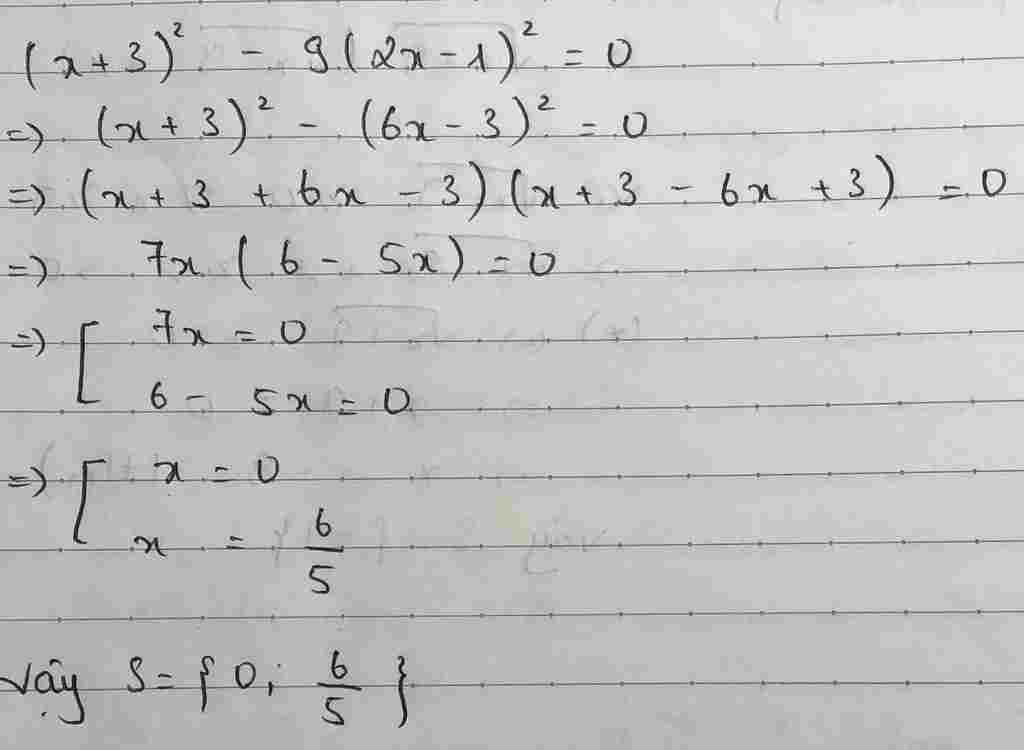 (x+3)² - 9(2x-1)² = 0
=) (x+3)² - (6x-3)² = 0
=) (x+3+6x-3)(x+3-6x+3) = 0
=) 7x(6-5x) = 0
=) [ 7x = 0
6 - 5x = 0
=) [ x = 0
x = 6/5
Vậy S = { 0; 6/5 }